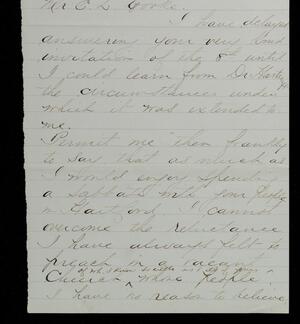 Mr E. L. Cooke.
I have delayed
answering your very kind
invitation of the 8th until
I could learn from Dr
the circumstances under
which it was extended to
me.
Permit me then frankly
to say that as much as
I would enjoy spending
a Sabbath with your People
in Hartford I cannot
overcome the reluctance
I have always felt to
preach in a vacant
Church whose People
I have no reason to believe